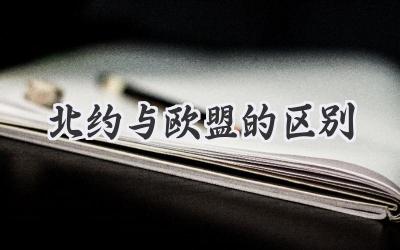 北约与欧盟的区别